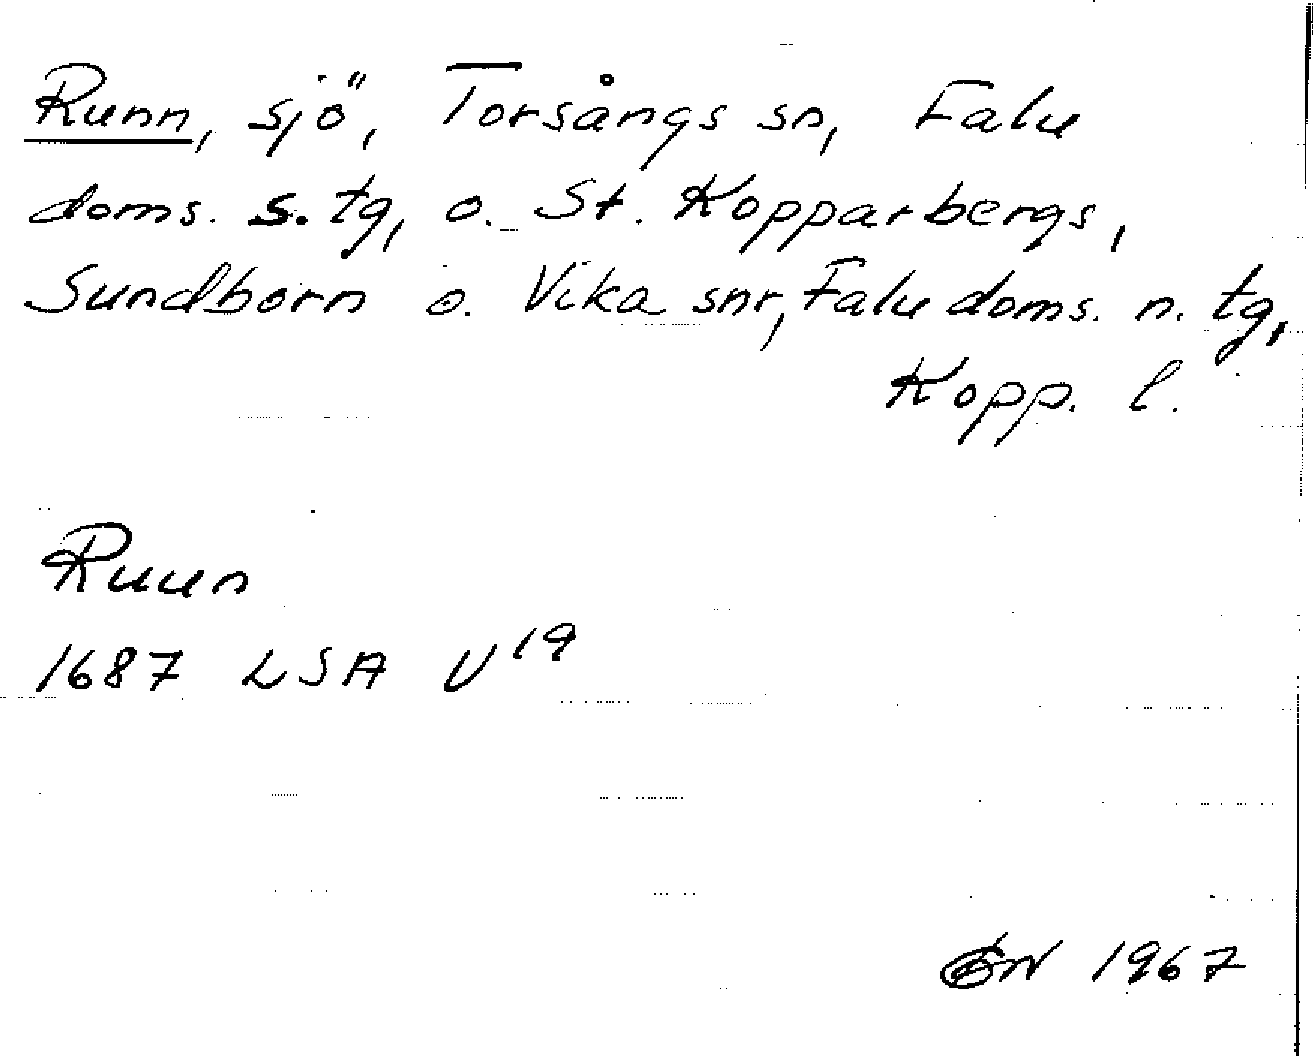 Runn, sjö, Torsångs sn, Falu
doms. s. tg, o. St. Kopparbergs,
Sundborn o. Vika snr, Falu doms. n. tg,
Kopp. l.
Ruun
1687 LSA U 19
1967